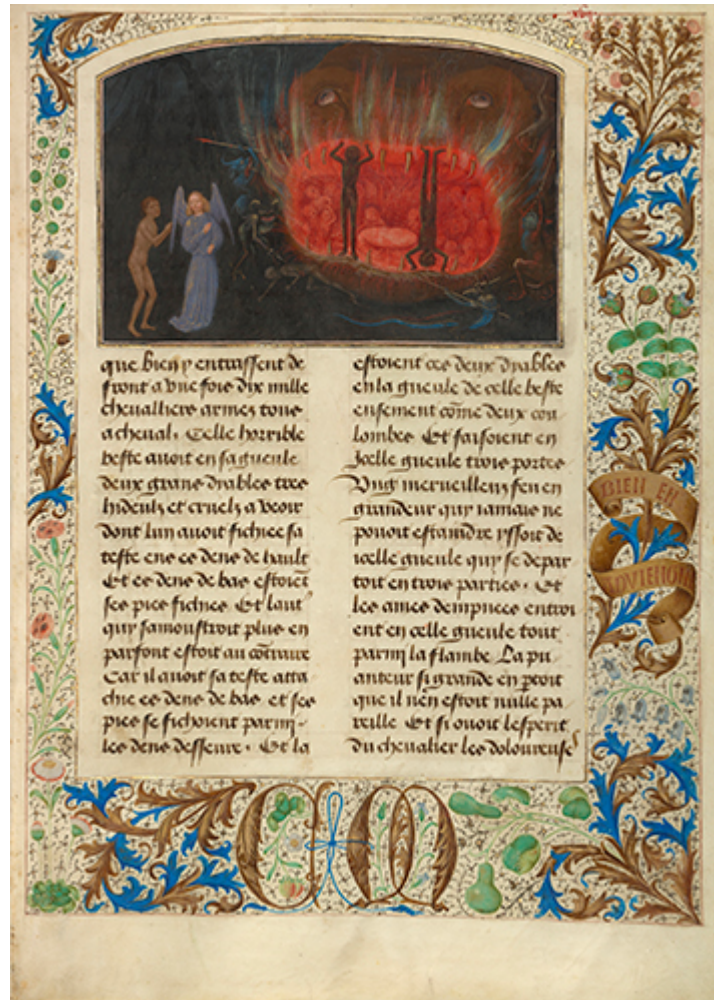 que bien y entrassent de
front a vne fois dix mille
chevalliers armez tous
a cheval. Celle horrible
beste auoit en sa gueule
deux grans dyables tres
hideulx et cruelz a veoir
dont lun auoit fichiee sa
teste ens es dens de hault
Et es dens de bas estoiēt
ses piez fichies. Et lautr̄
qui samoustroit plus en
parfont estoit au cōtraire
Car il auoit sa teste atta
chie es dens de bas et ses
piez se fichoient parmi
les dens desseure. Et la
estoient ces deux dyables
en la gueule de celle beste
ensement cōme deux cou
lombes Et faisoient en
Jcelle gueule trois portes
Vng merueilleux feu en
grandeur qui iamais ne
pouoit estaindre yssoit de
icelle gueule qui se depar
toit en trois parties. Et
les ames dempnees entroi
ent en celle gueule tout
parmi la flambe La pu
anteur si grande en yssoit
que il nen estoit nulle pa
reille Et si ouoit lesperit
du cheualier les doloureuses
BIEN EN
AVIENGNE
C M